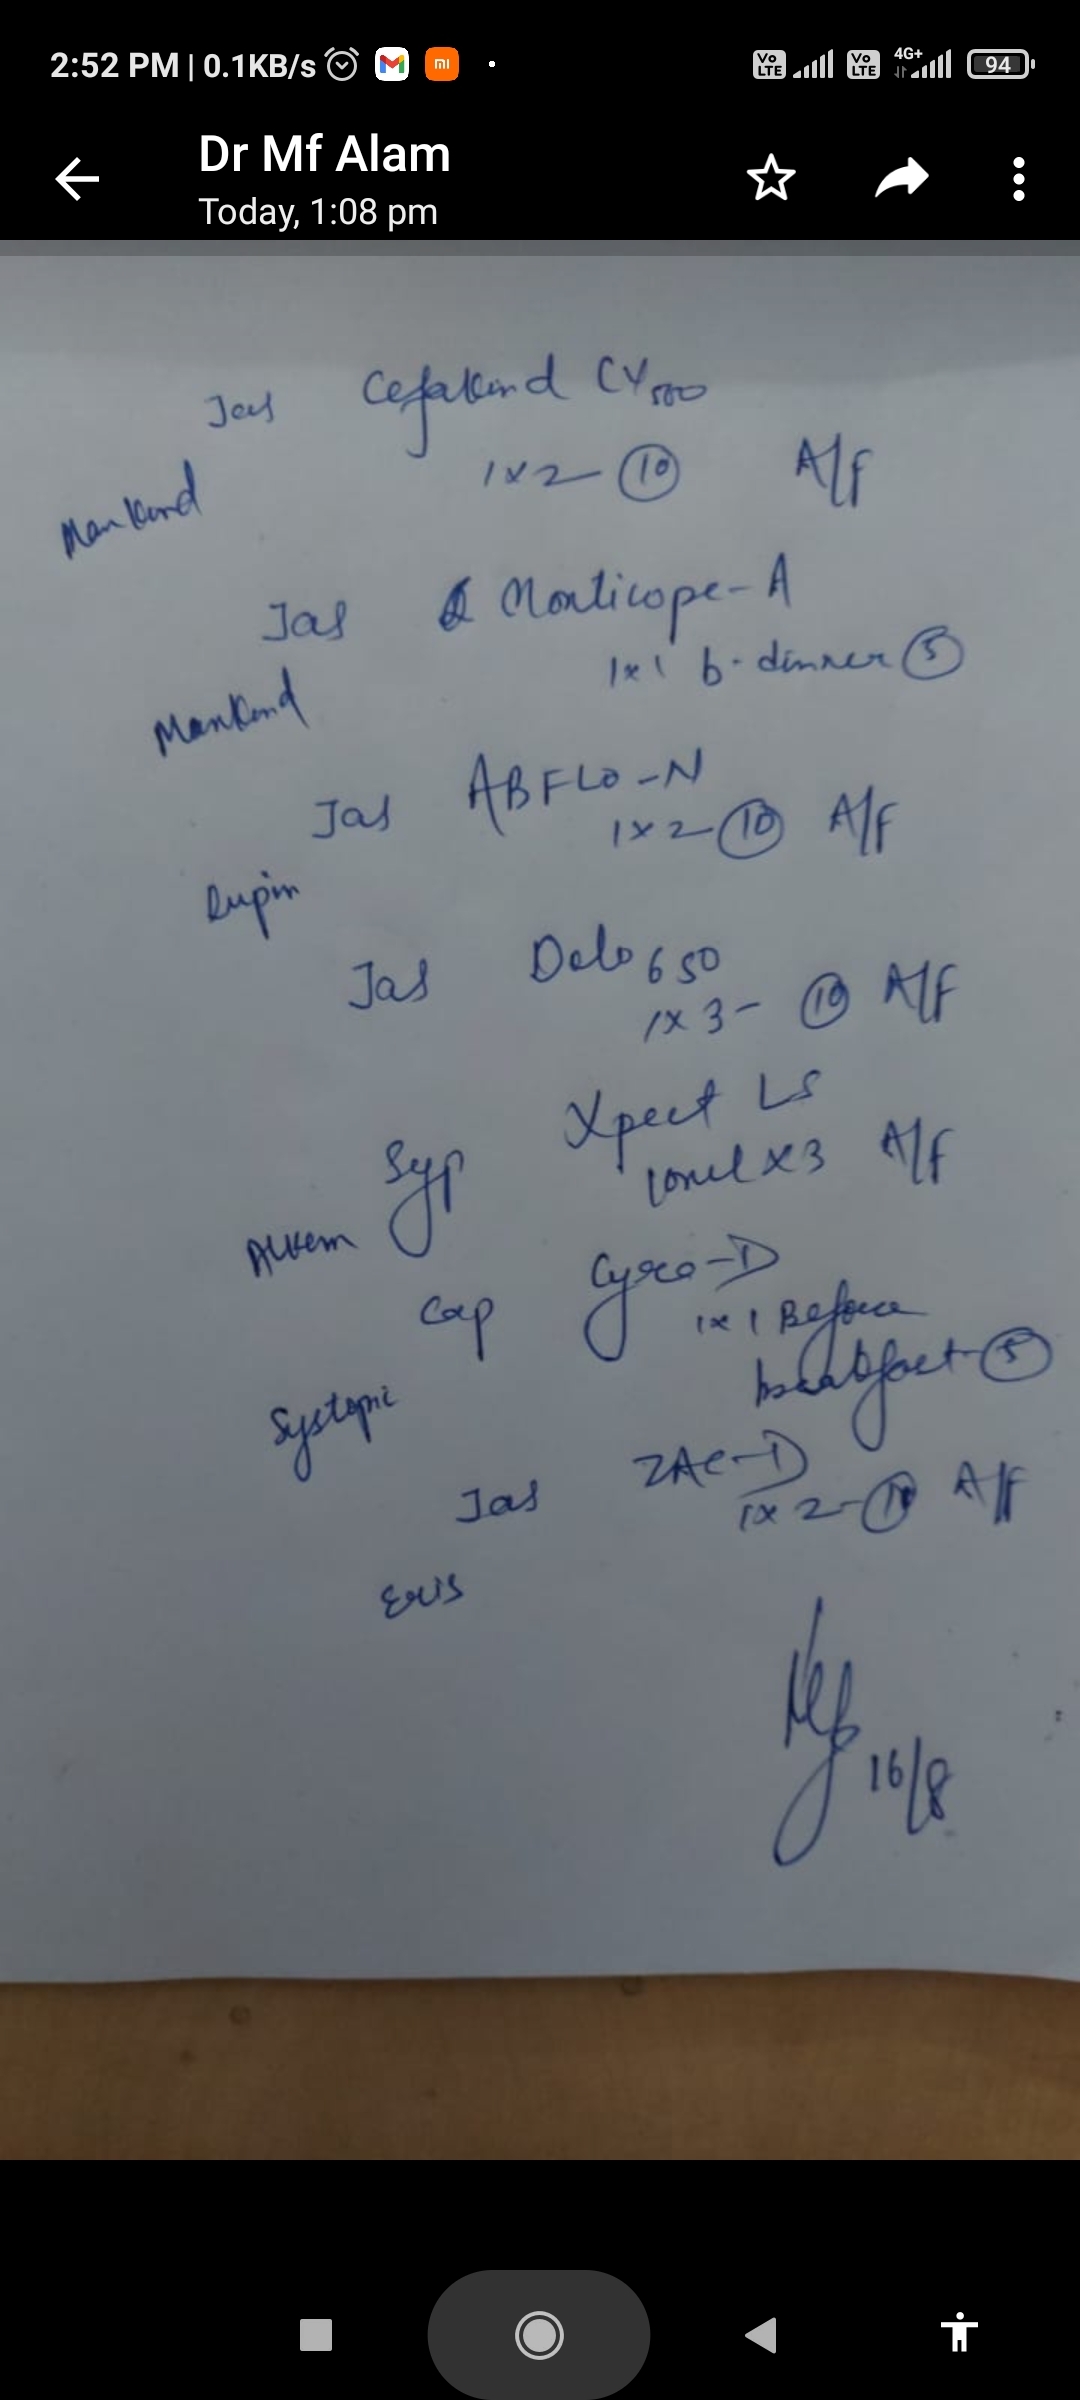 2:52 PM | 0.1KB/s
Vo LTE Vo LTE 4G+ 94
Dr Mf Alam
Today, 1:08 pm
Tab Cefakind CV 500
1x2 - 10 A/F
Mankind
Tab Monticope-A
1x1 b. dinner 5
Mankind
Tab ABFLO-N
1x2 - 10 A/F
Lupin
Tab Dolo 650
1x3 - 10 A/F
Syp Xpect LS
10ml x3 A/F
Alkem
Cap Cyra-D
1x1 Before
breakfast - 5
Systopic
Tab ZAC-D
1x2 - 10 A/F
Eris
16/8